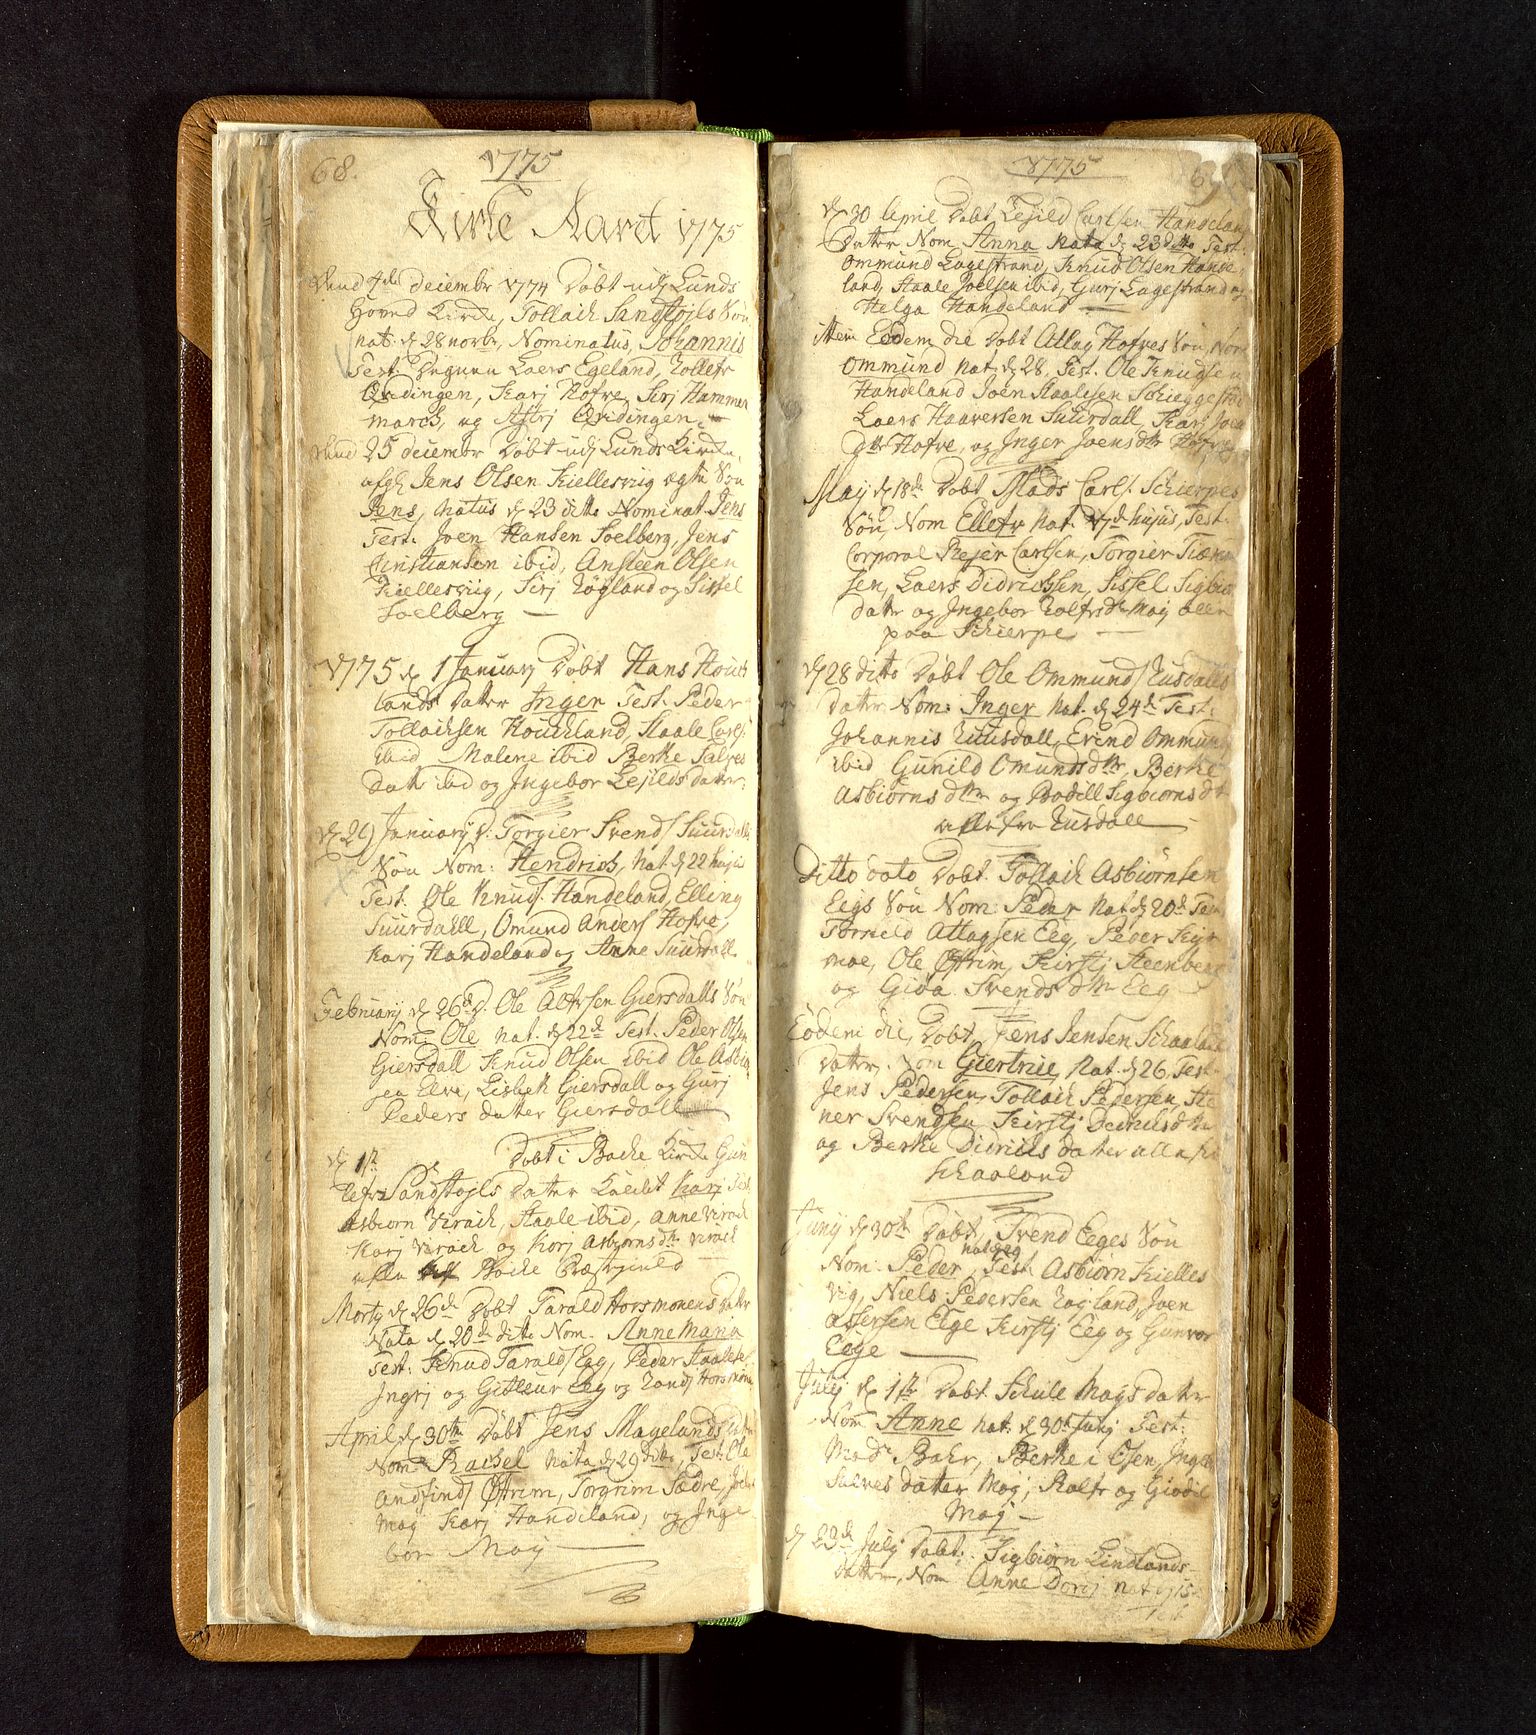 68.
1775
Kirke Aaret 1775
4de decembr 1774 Döbt udj Lunds
Hoved Kirke, Tollach Sandstøjls Søn
nat. d 28 novbr, Nominatus, Johannis
Test. Laers Egeland, Tollefr
Qvidingen, Karj Hofve, Sirj Hammer
march, og Astrj Qvidingen.
25 decembr Döbt udj Lunds Kirke,
afg. Jens Olsen Kiellesviig ægte Søn
Jens, natus d 23 ditto Nominat. Jens
Test. Joen Hansen Soelberg, Jens
Christiansen ibid, Ansteen Olsen
Kiellesviig, Sirj Røgland og Sissel
Soelberg
1775 d 1 January Döbt Hans Houch
lands Datter Inger Test. Peder
Tollachsen Houchland, Staale Carls.
ibid Malene ibid Berthe Salves
datt ibid og Ingebor Lejilds datter.
d 29 January d. Torgier Svends Suurdalls
Søn Nom: Hendrich, Nat. d 22 hujus
Test. Ole Knuds. Handeland, Elling
Suurdall, Omund Anders Hofve,
Karj Handeland og Anne Suurdall
February d 26de d. Ole Alfsen Giersdalls Søn
Nom. Ole nat. d 22de Test. Peder Olsen
Giersdall Knud Olsen ibid Ole Asbiør
sen Elve, Lisbeth Giersdall og Gurj
Peders datter Giersdall
d 1ste Döbt i Backe Kirke Gun
lefr Sandstøjls Datter Kaldet Karj Test
Asbiørn Veraek, Staale ibid, Anne Veraek
Karj Veraek og Karj Asbjørns dtr. Veraek
alle af Backe Præstegield
Marty d 26de Döbt Tarald Horsmonens datter
Nata d 20de ditto Nom. Anne Maria
Test: Knud Taralds Egg, Peder Staalesen
Ingrj og Gitleur Eeg og Horsmonen
April d 30te Döbt Jens Magelands datter
Nom: Rachel Nata d 29 dito, Test: Ole
Andfinds Østrim, Torgrim Sædre,
Moy Karj Handeland, og Inge
bor Moy
1775
69
d 30 April Döbt Lejild Carlsen Handelans
Datter Nom. Anna nata d 23 ditto Test.
Ommund Eagestrand, Knud Olsen Hande
land, Staale Joelsen ibid, Gurj Eagestrand og
Helga Handeland
item Eodem die Döbt Attlag Hofves Søn, Nom
Ommund nat. d 28. Test. Ole Knudsen
Handeland Joen Staalesen Schieggestad
Laers Haaversen Suurdall, Karj Joens
dttr Hofve, og Inger Joens dtr Hofve
May d 18de Döbt Mads Carls. Schierpes
Søn, Nom Ellefr Nat. 17de hujus, Test.
Corporal Rejer Carlsen, Torgier
sen, Laers Didrichsen, Sissel Sigbiørns
datter og Ingebor Rolfsdtr Moy alle
paa Schierpe
d 28 ditto Döbt Ole Ommunds Ruusdalls
datter Nom: Inger Nat. d 24de Test.
Johannis Ruusdall, Evind Ommunds
ibid Gunild Omunds dttr, Berthe
Asbiørns dttr og Bodell Sigbiørns dtr
alle fra Rusdall
Ditto dato Döbt Tollach Asbiörnsen
Eegs Søn Nom: Peder nat d 20de Test
Torkeld Attlagsen Eeg, Peder
moe, Ole Østrim, Kirstj Steenberg
og Giva Svends dttr Eeg
Eodem die, Döbt Jens Jensen Schaalands
Datter. Nom Giertrue Nat. d 26. Test.
Jens Pedersen, Tollach Pedersen, Ste
ner Svendsen Kirstj Didrichs dtr
og Berthe Didrichs datter alle fra
Schaaland
Junij d 30te Döbt Svend Eeges Søn
Nom: Peder, Test. Asbiörn Kielles
vig, Niels Pedersen Røgland, Joen
Assersen Eege Kirstj Eeg og Gunvor
Eege
July d 1ste Döbt Schule Moys datter
Nom Anne nat. d 30te Test:
Mad. Bahr, Berthe i Osen,
Salves datter Moy, Rolfr og Giödel
Moy
d 23de July Döbt: Sigbiörn Lindlands
datter, Nom Anne Dorej nat d 15
Test